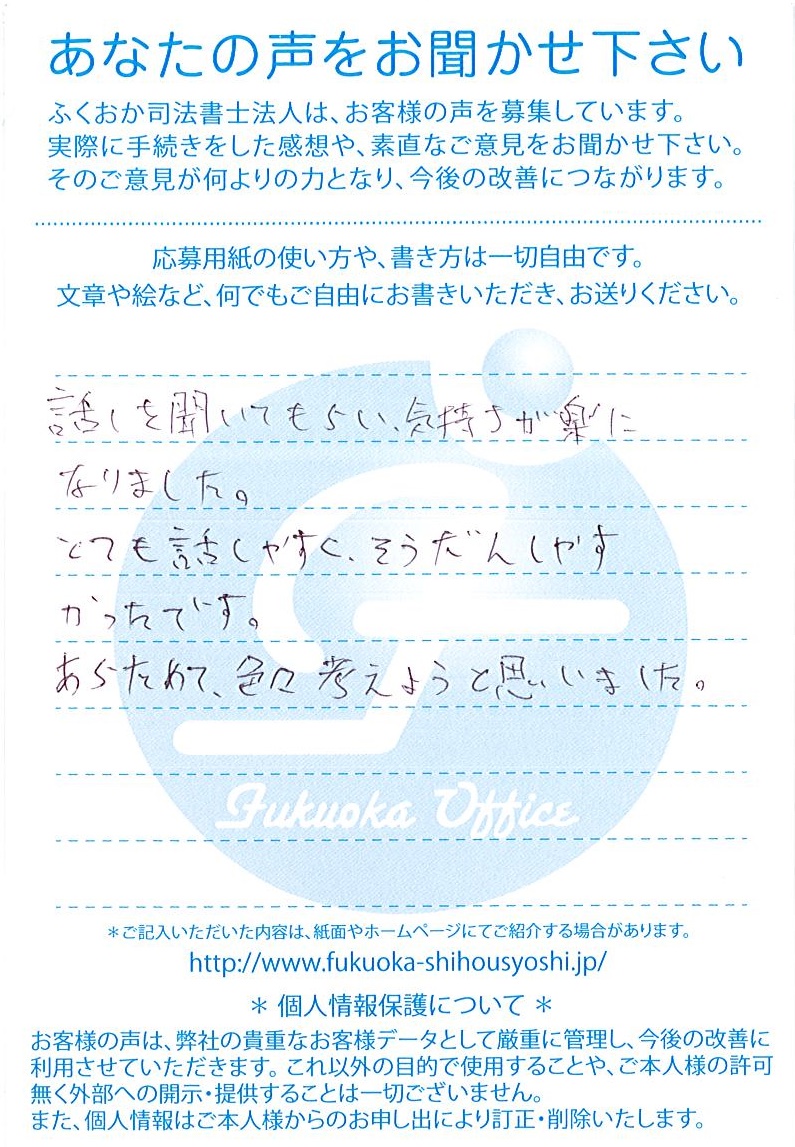 あなたの声をお聞かせ下さい
ふくおか司法書士法人は、お客様の声を募集しています。
実際に手続きをした感想や、素直なご意見をお聞かせ下さい。
そのご意見が何よりの力となり、今後の改善につながります。
応募用紙の使い方や、書き方は一切自由です。
文章や絵など、何でもご自由にお書きいただき、お送りください。
話しを聞いてもらい、気持ちが楽に
なりました。
とても話しやすく、そうだんしやす
かったです。
あらためて、色々考えようと思いました。
Fukuoka Office
＊ご記入いただいた内容は、紙面やホームページにてご紹介する場合があります。
http://www.fukuoka-shihousyoshi.jp/
＊ 個人情報保護について ＊
お客様の声は、弊社の貴重なお客様データとして厳重に管理し、今後の改善に
利用させていただきます。これ以外の目的で使用することや、ご本人様の許可
無く外部への開示・提供することは一切ございません。
また、個人情報はご本人様からのお申し出により訂正・削除いたします。